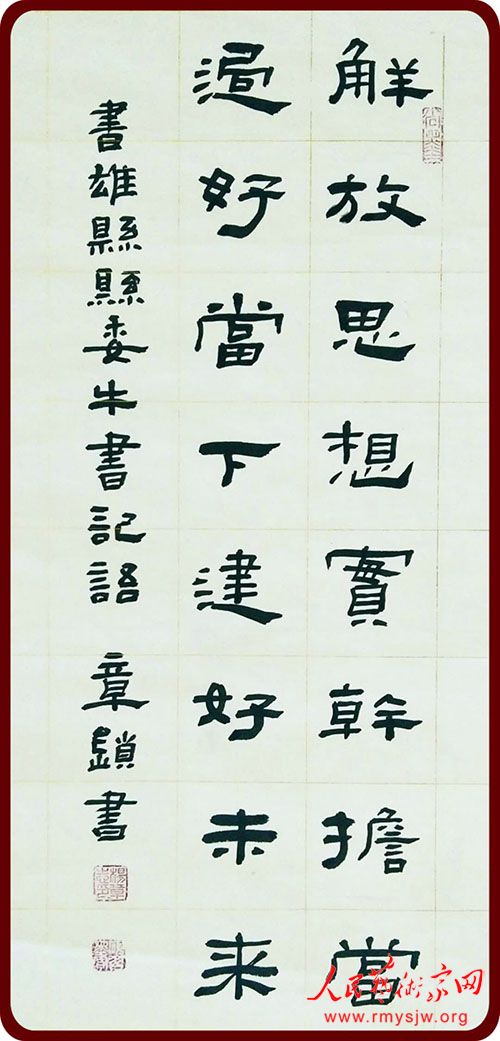 觧放思想實幹擔當
過好當下建好未来
書雄縣縣委牛書記語 章鎖書
人民藝術家网
www.rmysjw.org